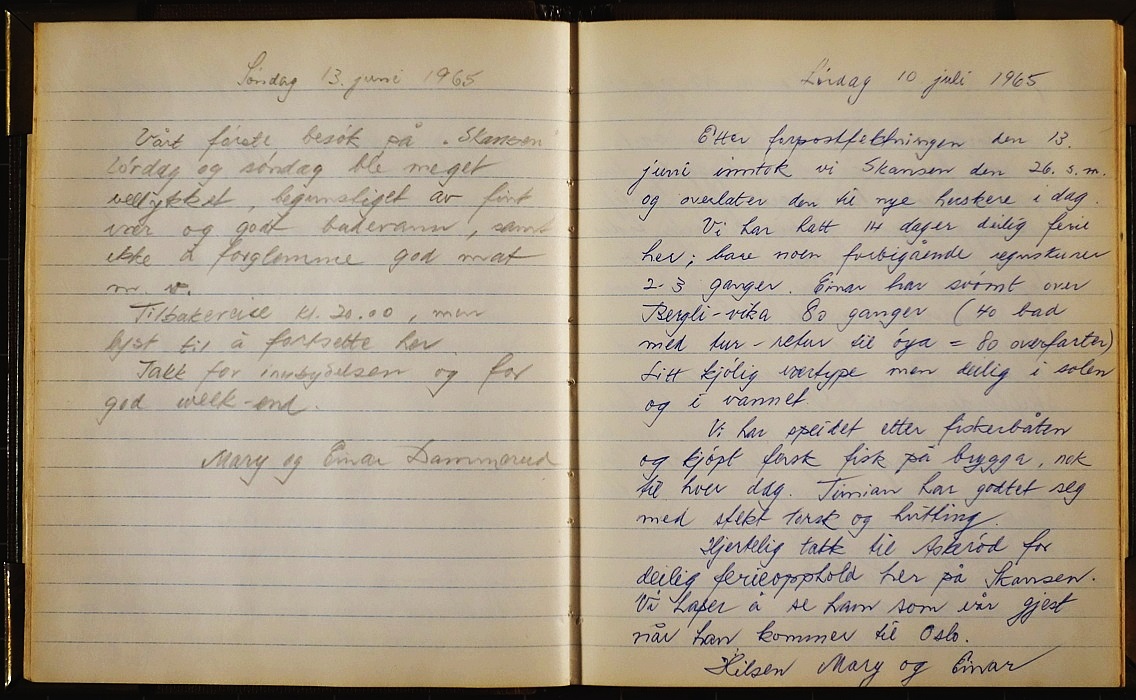 Søndag 13. juni 1965
Vårt første besøk på "Skansen"
lørdag og søndag ble meget
vellykket, begunstiget av fint
vær og godt badevann, samt
ikke å forglemme god mat
m. v.
Tilbakereise kl. 20.00, men
lyst til å fortsette her
Takk for innbydelsen og for
god week-end.
Mary og Einar Dammerud
Lørdag 10 juli 1965
Etter forpostfektningen den 13.
juni inntok vi Skansen den 26. s.m.
og overlater den til nye herskere i dag.
Vi har hatt 14 dager deilig ferie
her; bare noen forbigående regnskurer
2-3 ganger. Einar har svømt over
Bergli-vika 80 ganger (40 bad
med tur-retur til øya = 80 overfarter)
Litt kjølig værtype men deilig i solen
og i vannet.
Vi har speidet etter fiskerbåten
og kjøpt fersk fisk på brygga, nok
til hver dag. Timian har godtet seg
med stekt torsk og hvitting.
Hjertelig takk til Askerød for
deilig ferieopphold her på Skansen.
Vi håper å se ham som vår gjest
når han kommer til Oslo.
Hilsen Mary og Einar